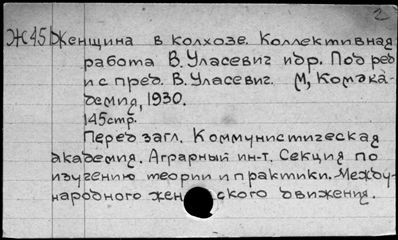 2
Ж45 Женщина в колхозе. Коллективная
работа В. Уласевич и др. Под ред
и с пред. В. Уласевич. М, Комака-
демия, 1930.
145стр.
Перед загл. Коммунистическая
академия. Аграрный ин-т. Секция по
изучению теории и практики Между-
народного женского движения.